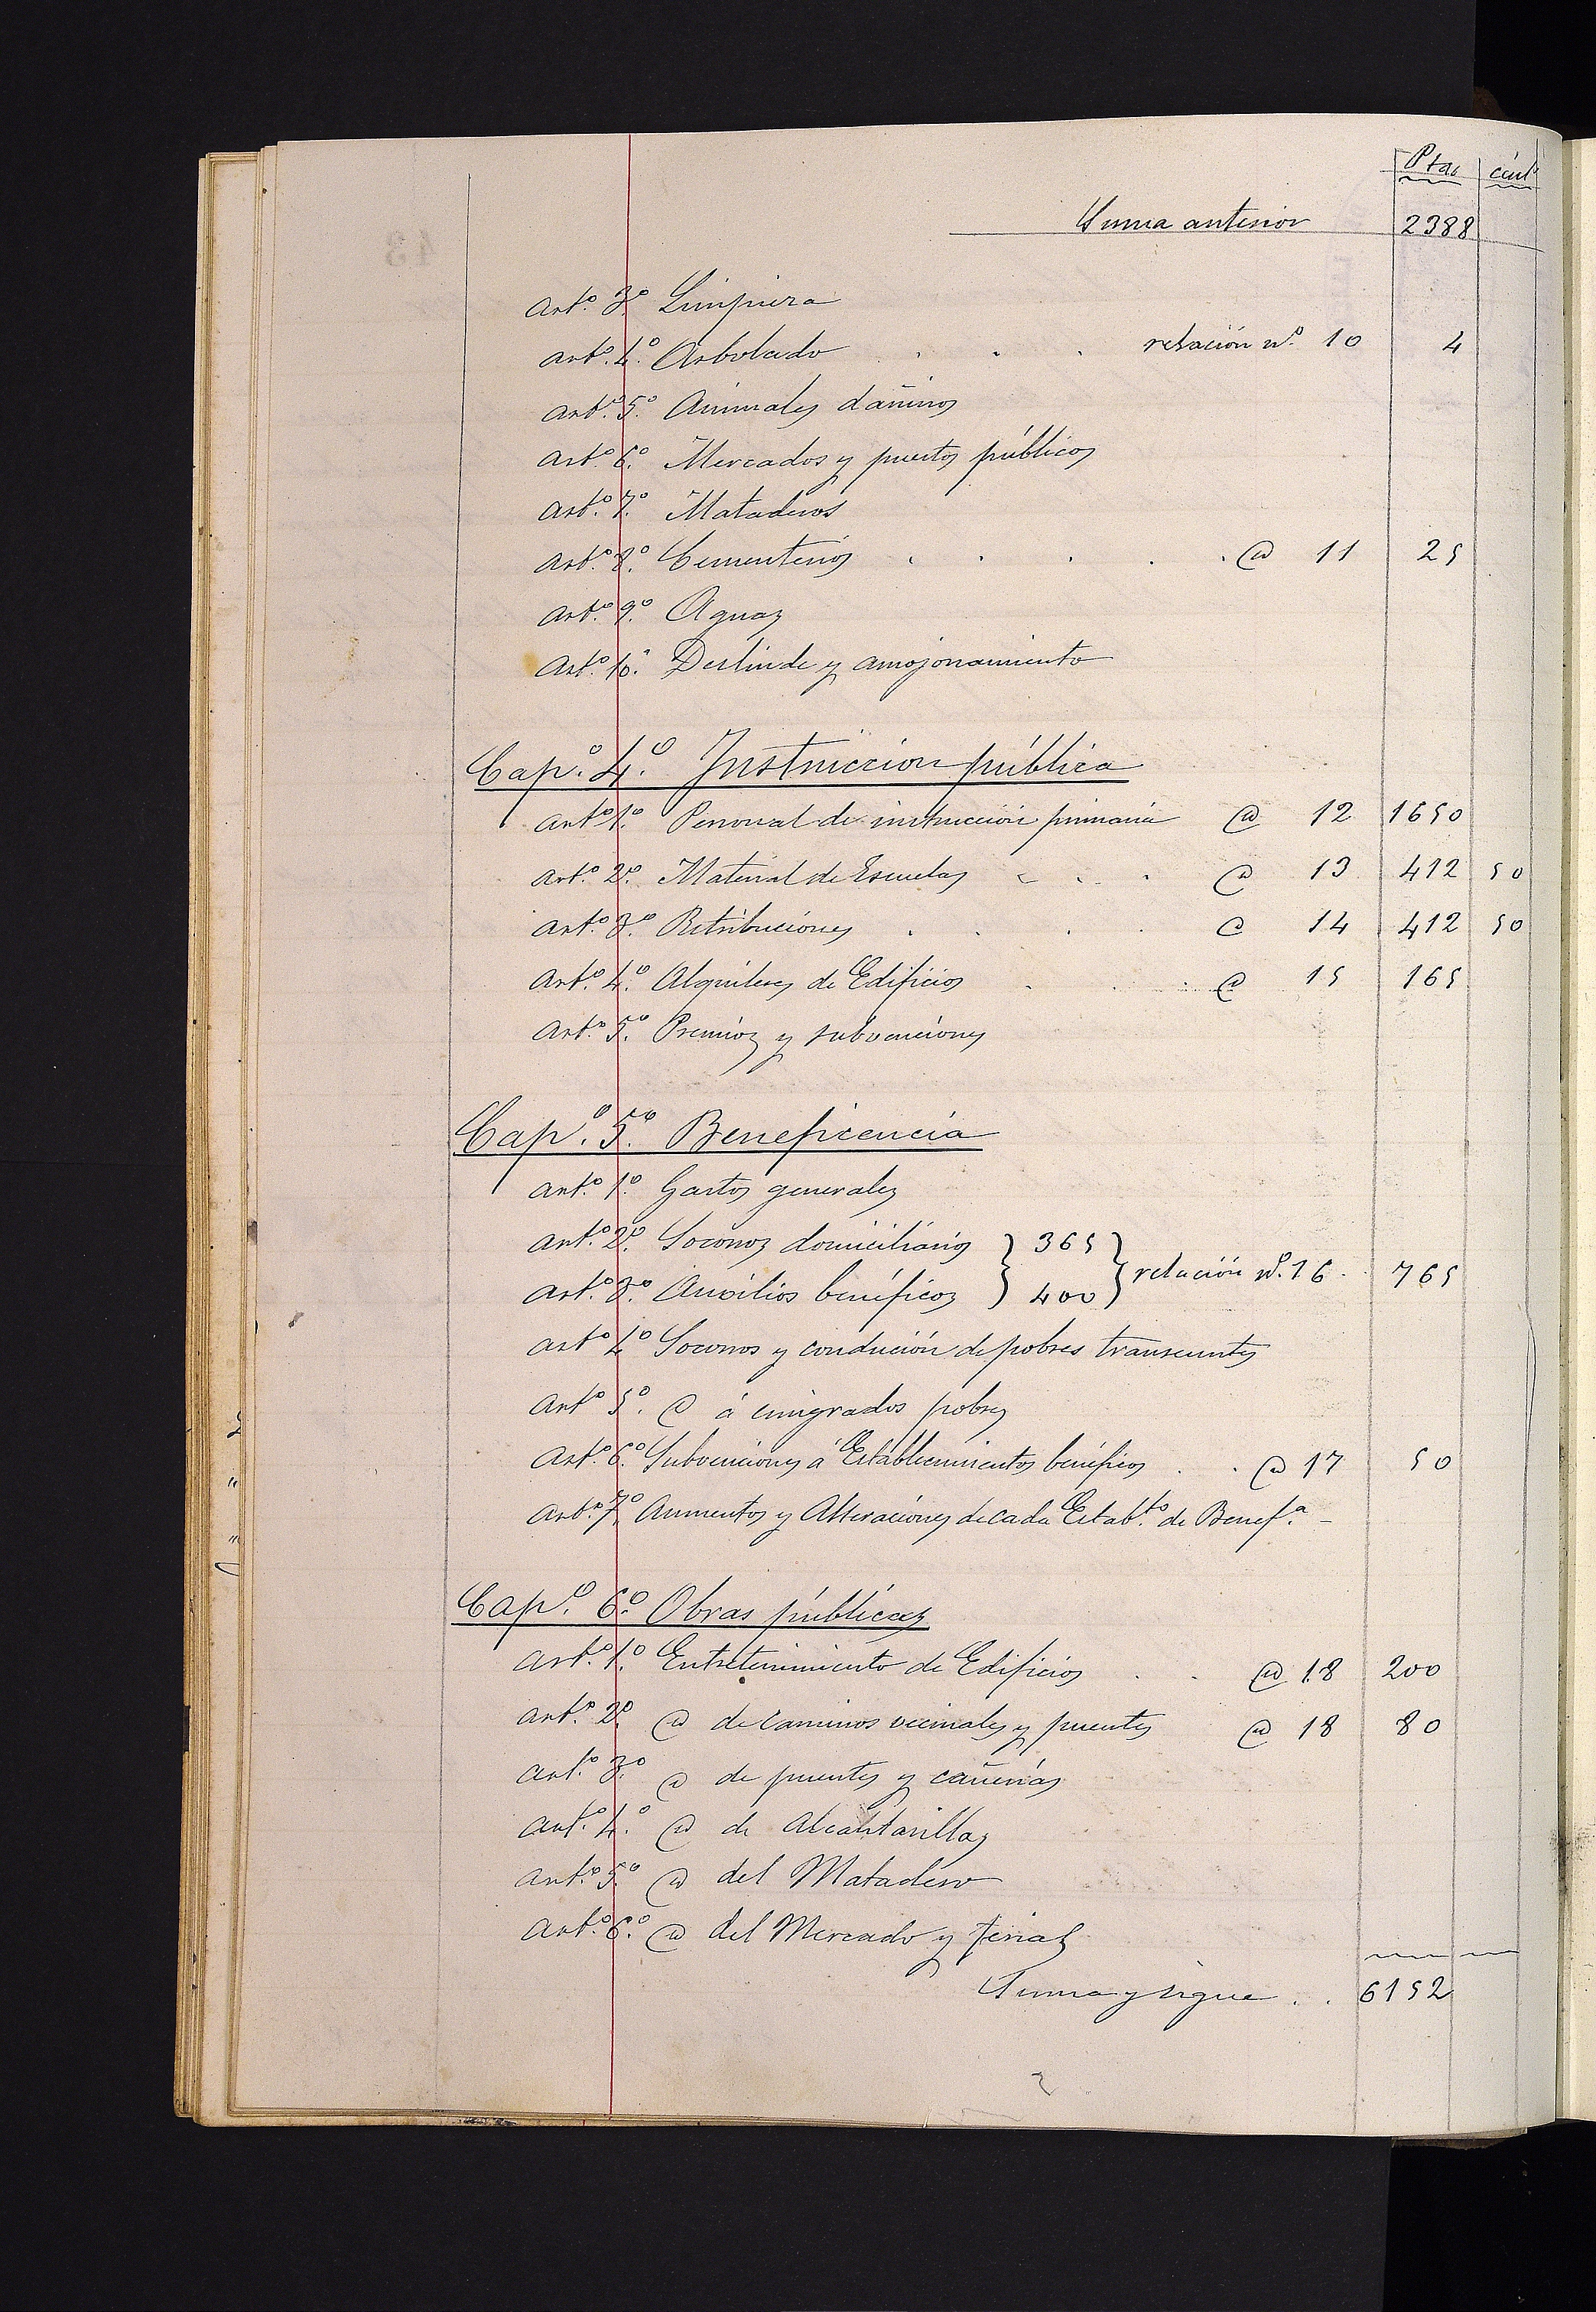 Ptas cént.
Suma anterior 2388
art.º 3.º Limpieza
art.º 4.º Arbolado . . . relación n.º 10 4
art.º 5.º Animales dañinos
art.º 6.º Mercados y puestos públicos
art.º 7.º Mataderos
art.º 8.º Cementerios . . . . . @ 11 25
art.º 9.º Aguas
art.º 10.º Deslinde y amojonamiento
Cap.º 4.º Instruccion pública
art.º 1.º Personal de instrucción primaria @ 12 1650
art.º 2.º Material de Escuelas . . . @ 13 412 50
art.º 3.º Retribuciones . . . . @ 14 412 50
art.º 4.º Alquileres de Edificios . . . @ 15 165
art.º 5.º Premios y subvenciones
Cap.º 5.º Beneficencia
art.º 1.º Gastos generales
art.º 2.º Socorros domiciliarios } 365 }
art.º 3.º Auxilios benéficos } 400 } relación n.º 16 . 765
art.º 4.º Socorros y condución de pobres transeuntes
art.º 5.º @ á emigrados pobres
art.º 6.º Subvenciones á Establecimientos benéficos . . @ 17 50
art.º 7.º Aumentos y Alteraciones de cada Estab.to de Benef.ª -
Cap.º 6.º Obras públicas
art.º 1.º Entretenimiento de Edificios . . @ 18 200
art.º 2.º @ de caminos vecinales y puentes @ 18 80
art.º 3.º @ de puentes y cañerias
art.º 4.º @ de Alcantarillas
art.º 5.º @ del Matadero
art.º 6.º @ del Mercado y ferias
Suma y sigue . . 6152